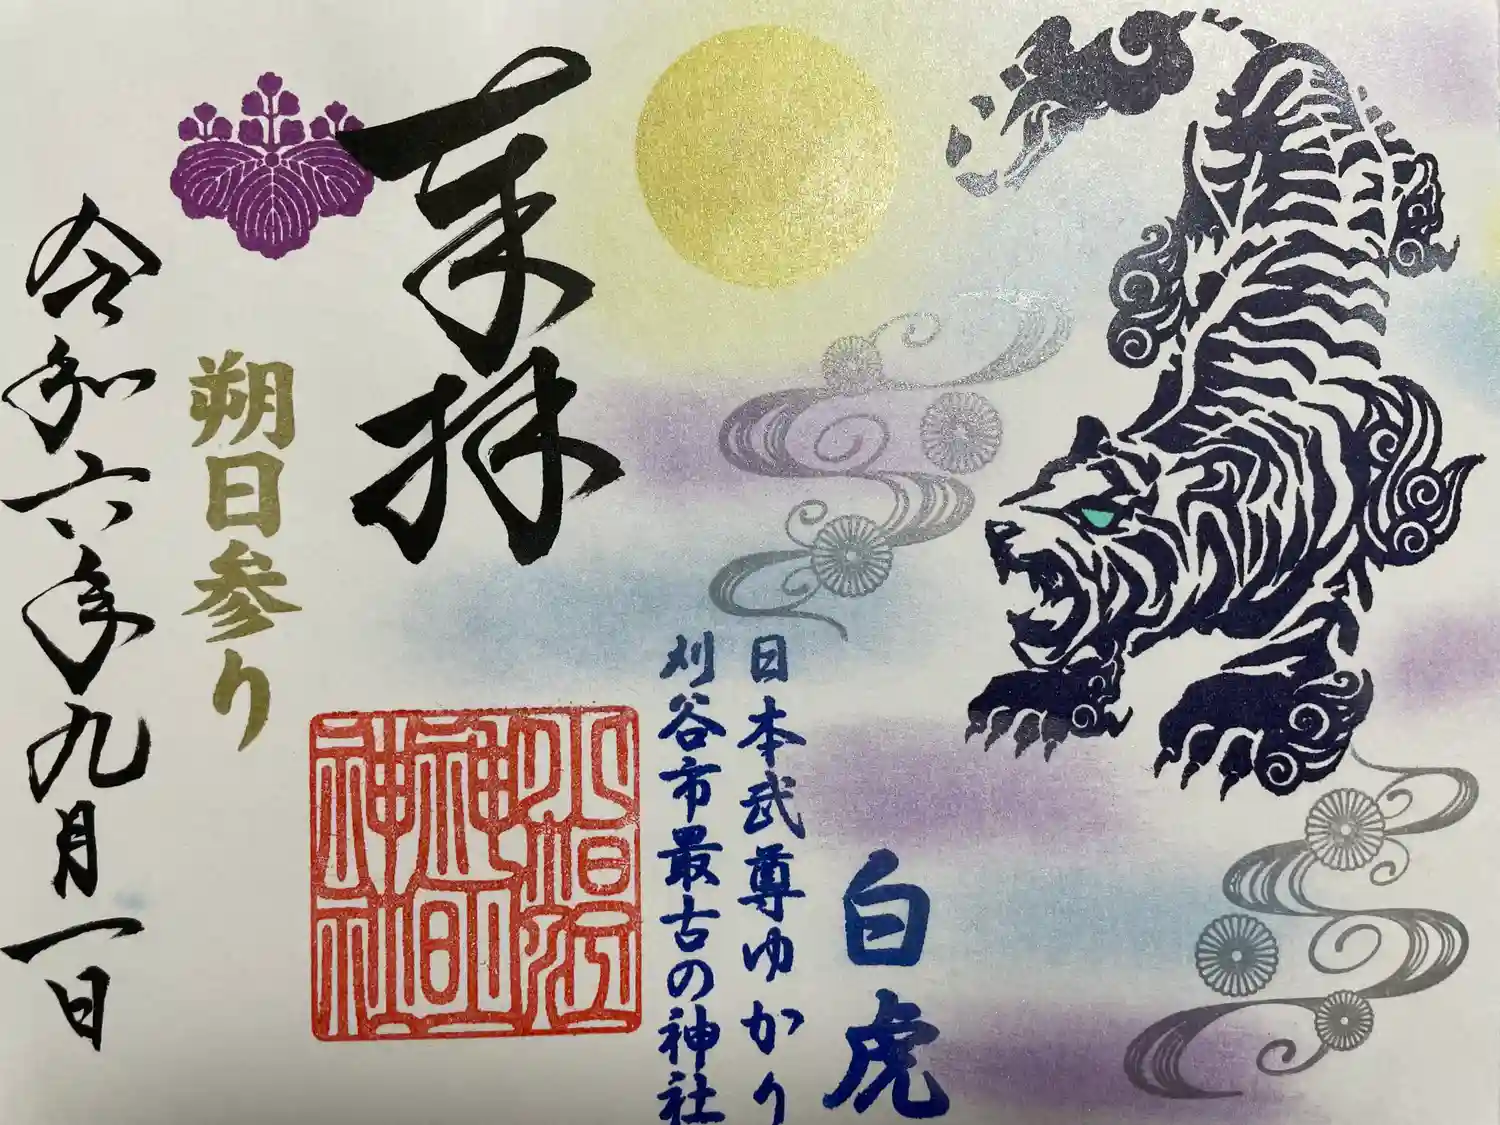 白虎
日本武尊ゆかり
刈谷市最古の神社
奉拝
小垣江
神明
神社
朔日参り
令和六年九月一日